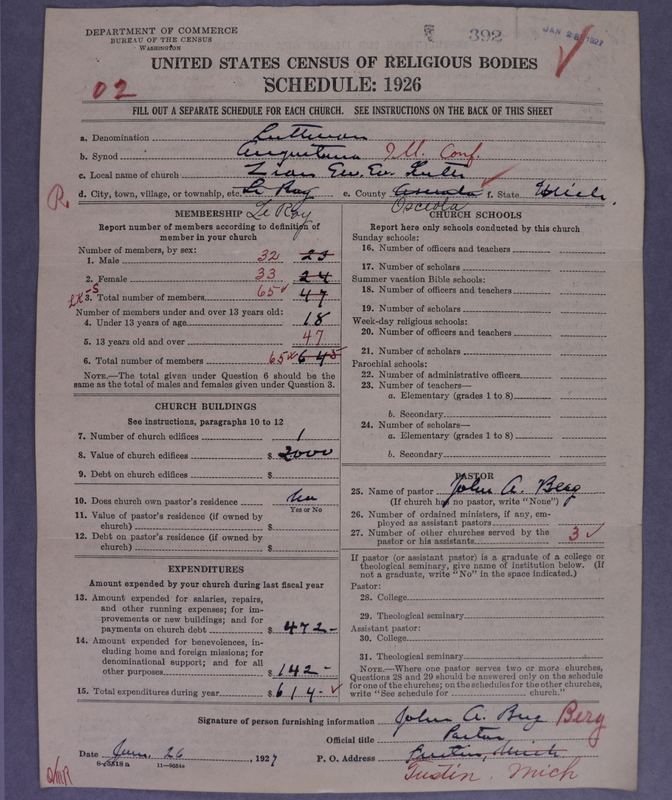 DEPARTMENT OF COMMERCE
BUREAU OF THE CENSUS
WASHINGTON
392
JAN 28 1927
UNITED STATES CENSUS OF RELIGIOUS BODIES
02
SCHEDULE: 1926
FILL OUT A SEPARATE SCHEDULE FOR EACH CHURCH. SEE INSTRUCTIONS ON THE BACK OF THIS SHEET
a. Denomination Lutheran
b. Synod Augustana Ill. Conf.
c. Local name of church Zion Ev. Luth
R. d. City, town, village, or township, etc. Le Roy e. County Osceola f. State Mich.
Le Roy Osceola
MEMBERSHIP
Report number of members according to definition of
member in your church
Number of members, by sex:
1. Male 32 23
2. Female 33 24
3. Total number of members 65 47
Number of members under and over 13 years old:
4. Under 13 years of age 18
5. 13 years old and over 47
6. Total number of members 65 645
NOTE.—The total given under Question 6 should be the
same as the total of males and females given under Question 3.
CHURCH BUILDINGS
See instructions, paragraphs 10 to 12
7. Number of church edifices 1
8. Value of church edifices $ 2000
9. Debt on church edifices $
10. Does church own pastor's residence No
Yes or No
11. Value of pastor's residence (if owned by
church) $
12. Debt on pastor's residence (if owned by
church) $
EXPENDITURES
Amount expended by your church during last fiscal year
13. Amount expended for salaries, repairs,
and other running expenses; for im-
provements or new buildings; and for
payments on church debt $ 472-
14. Amount expended for benevolences, in-
cluding home and foreign missions; for
denominational support; and for all
other purposes $ 142-
15. Total expenditures during year $ 614-
CHURCH SCHOOLS
Report here only schools conducted by this church
Sunday schools:
16. Number of officers and teachers
17. Number of scholars
Summer vacation Bible schools:
18. Number of officers and teachers
19. Number of scholars
Week-day religious schools:
20. Number of officers and teachers
21. Number of scholars
Parochial schools:
22. Number of administrative officers
23. Number of teachers—
a. Elementary (grades 1 to 8)
b. Secondary
24. Number of scholars—
a. Elementary (grades 1 to 8)
b. Secondary
PASTOR
25. Name of pastor John A. Berg
(If church has no pastor, write "None")
26. Number of ordained ministers, if any, em-
ployed as assistant pastors
27. Number of other churches served by the
pastor or his assistants 3
If pastor (or assistant pastor) is a graduate of a college or
theological seminary, give name of institution below. (If
not a graduate, write "No" in the space indicated.)
Pastor:
28. College
29. Theological seminary
Assistant pastor:
30. College
31. Theological seminary
NOTE.—Where one pastor serves two or more churches,
Questions 28 and 29 should be answered only on the schedule
for one of the churches; on the schedules for the other churches,
write "See schedule for church."
Signature of person furnishing information John A. Berg Berg
Official title Pastor
Date Jan. 26, 1927 P. O. Address Tustin, Mich
11—9684a Tustin, Mich